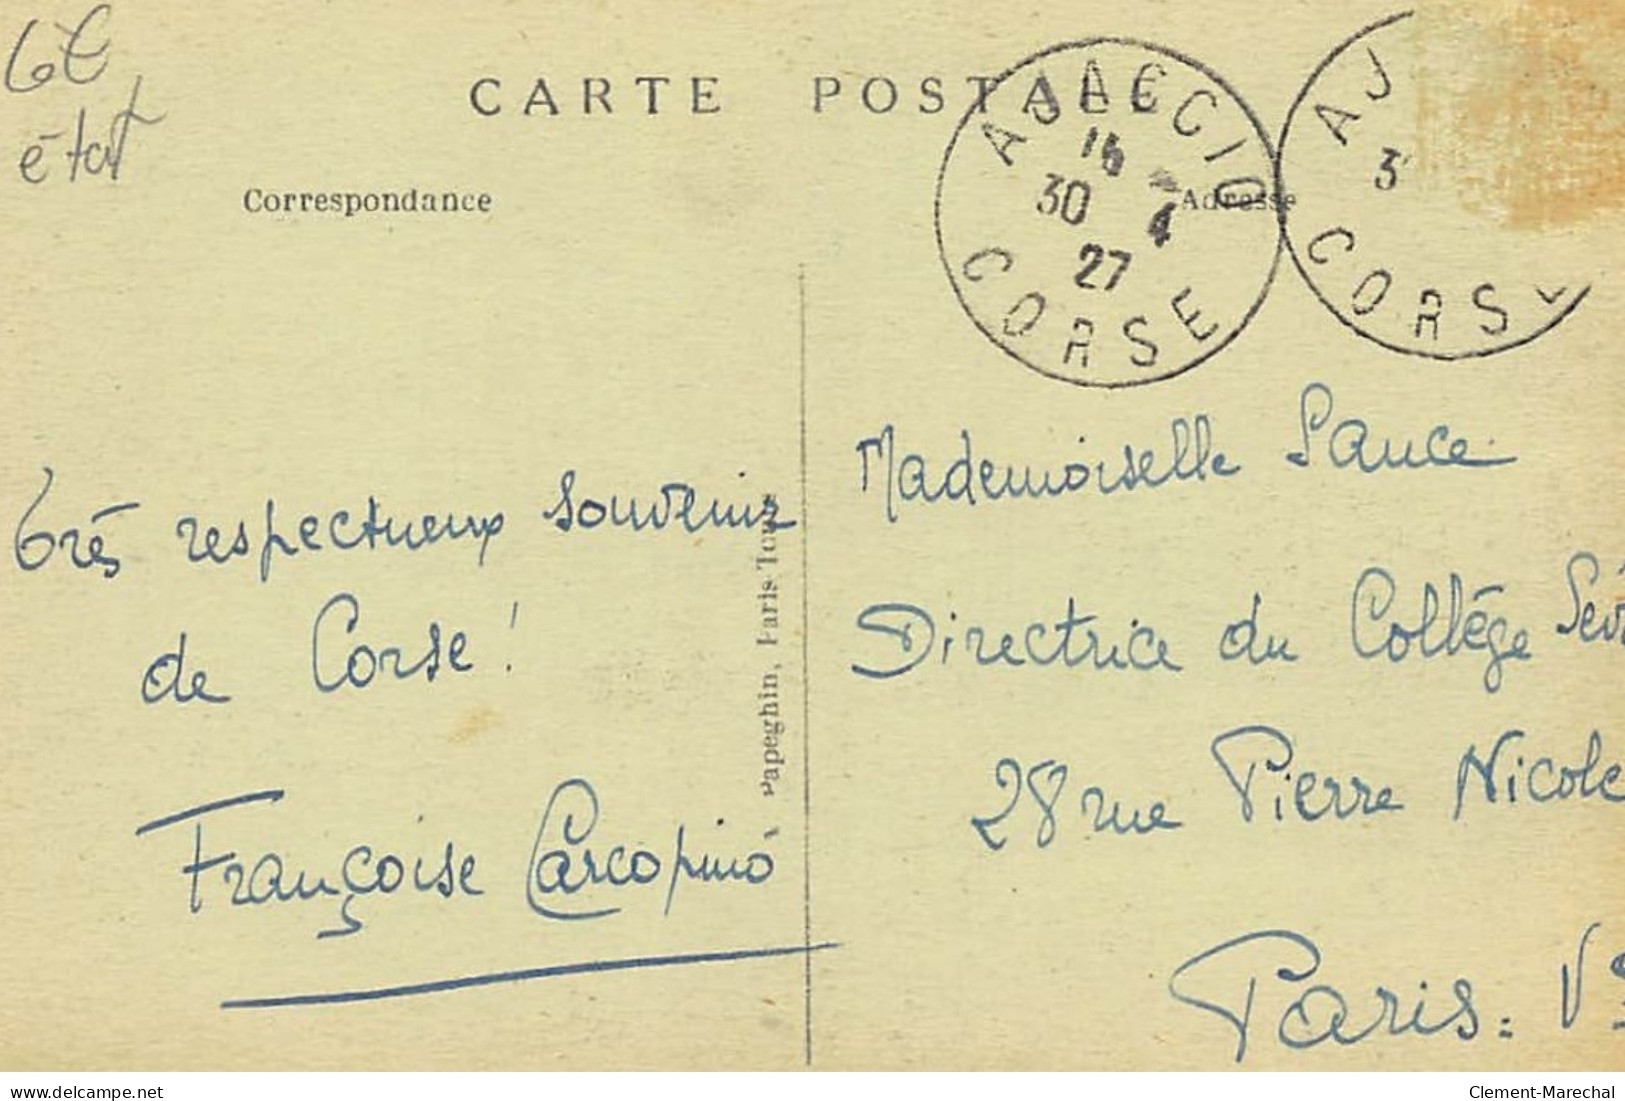 6€
état
CARTE POSTALE
Correspondance
Adresse
AJACCIO
16
30 4
27
CORSE
AJ
3
CORSE
Très respectueux souvenir
de Corse !
Françoise Carcopino
Papeghin, Paris Tours
Mademoiselle Sance
Directrice du Collège Sévi
28 rue Pierre Nicole
Paris. V
delcampe.net
Clement-Marechal